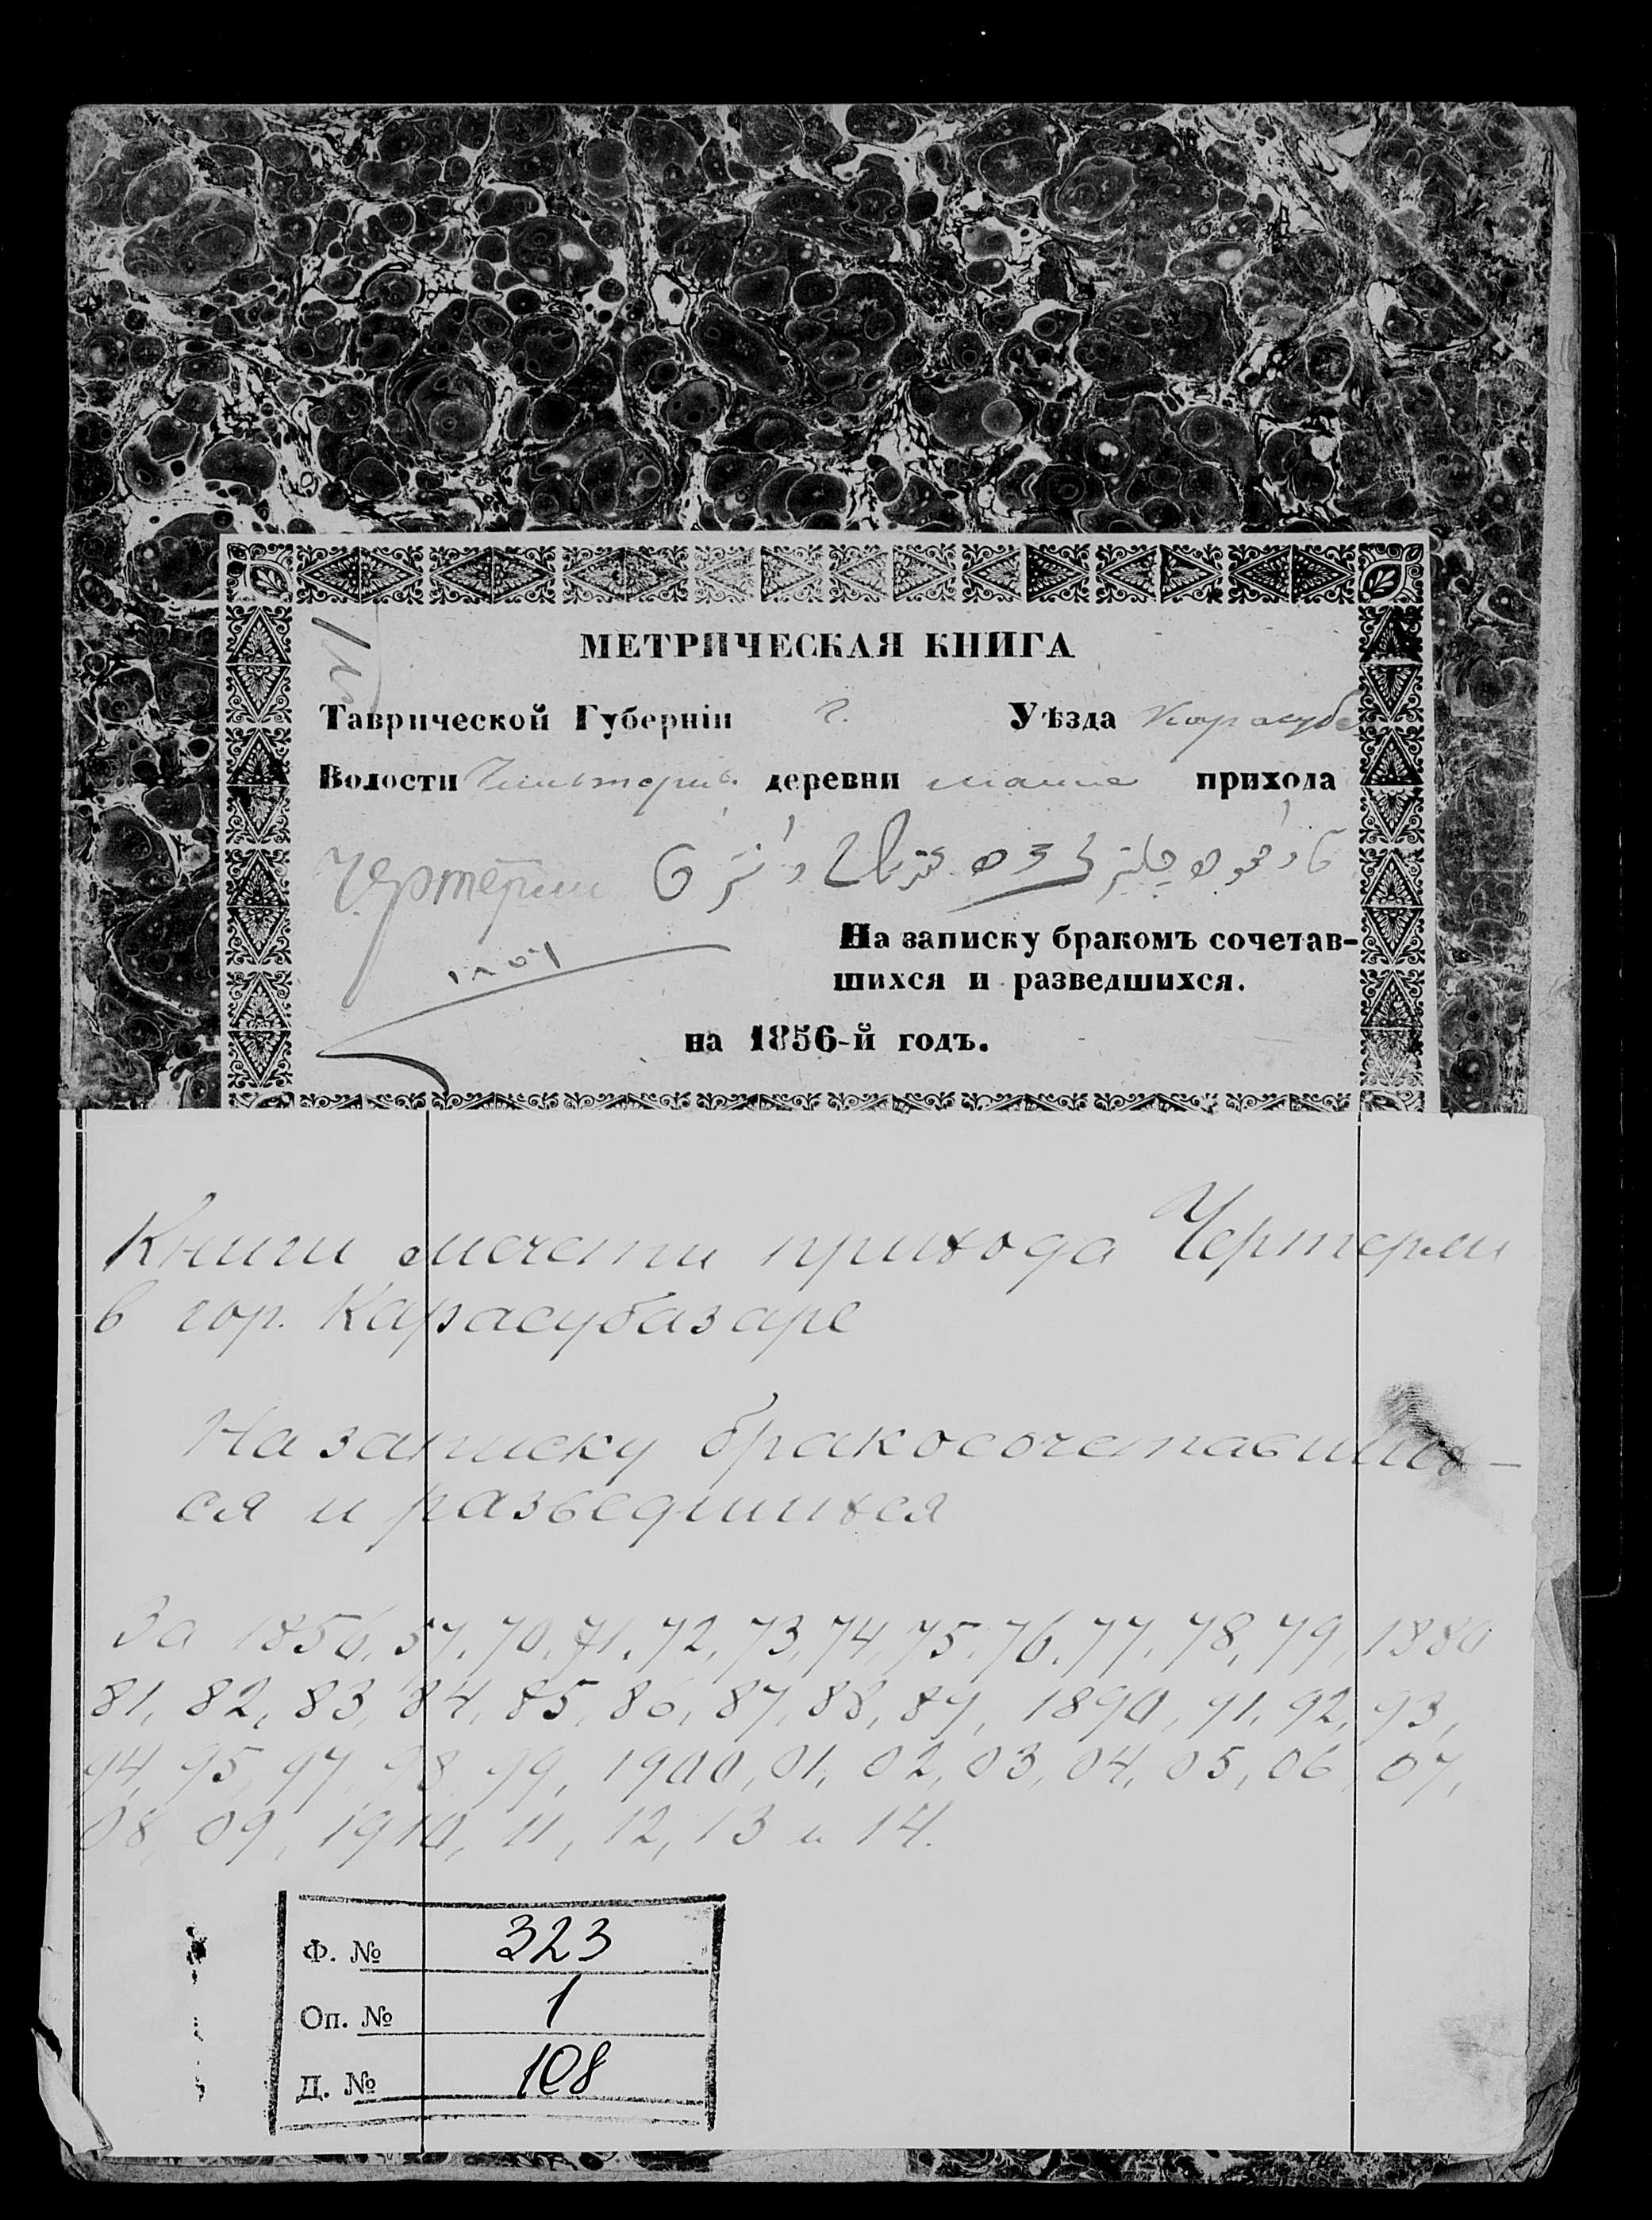 МЕТРИЧЕСКАЯ КНИГА
Таврической Губерніи г. Уѣзда Карасубе
Волости деревни прихода
Чертерли
١٨٥٦
На записку бракомъ сочетав-
шихся и разведшихся.
на 1856-й годъ.
Книги мечети прихода Чертерли
в гор. Карасубазаре
На записку бракосочетавших-
ся и разведшихся
За 1856, 57, 70, 71, 72, 73, 74, 75, 76, 77, 78, 79, 1880
81, 82, 83, 84, 85, 86, 87, 88, 89, 1890, 91, 92, 93,
94, 95, 97, 98, 99, 1900, 01, 02, 03, 04, 05, 06, 07,
08, 09, 1910, 11, 12, 13 и 14.
Ф. № 323
Оп. № 1
Д. № 108